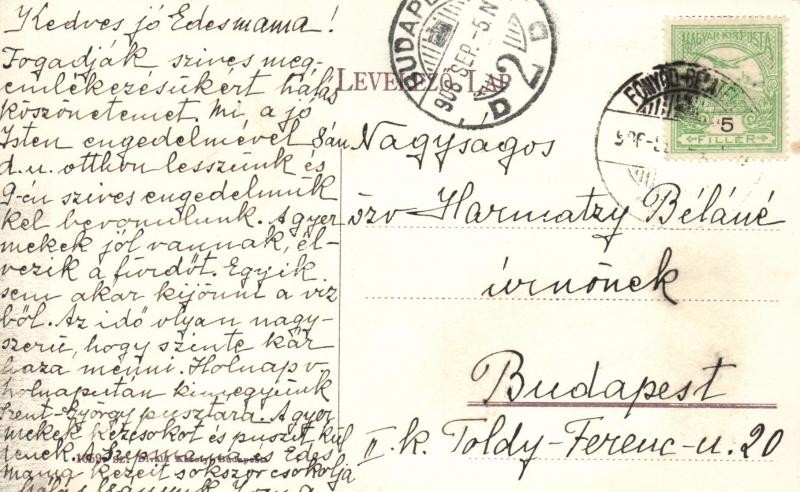 Kedves jó Édesmama!
Fogadják szives meg-
emlékezésükért hálás
köszönetemet. Mi, a jó
Isten engedelmével 8án
d.u. otthon lesszünk és
9-én szives engedelmük
kel bevonulunk. A gyer
mekek jól vannak, él-
vezik a fürdőt. Egyik
sem akar kijönni a víz
ből. Az idő olyan nagy-
szerű, hogy szinte kár
haza menni. Holnap v.
holnapután kimegyünk
Szent-György pusztára. A gyer
mekek kézcsókot és puszit kül
denek. Szep mama és Édes
mama kezeit sokszor csókolja
hálás
LEVELEZŐ-LAP
BUDAPEST
908 SEP. -5. N
2
D
MAGYAR KIR. POSTA
5
FILLER
FONYÓD
Nagyságos
özv Harmatzy Béláné
úrnőnek
Budapest
II. k. Toldy-Ferenc-u. 20